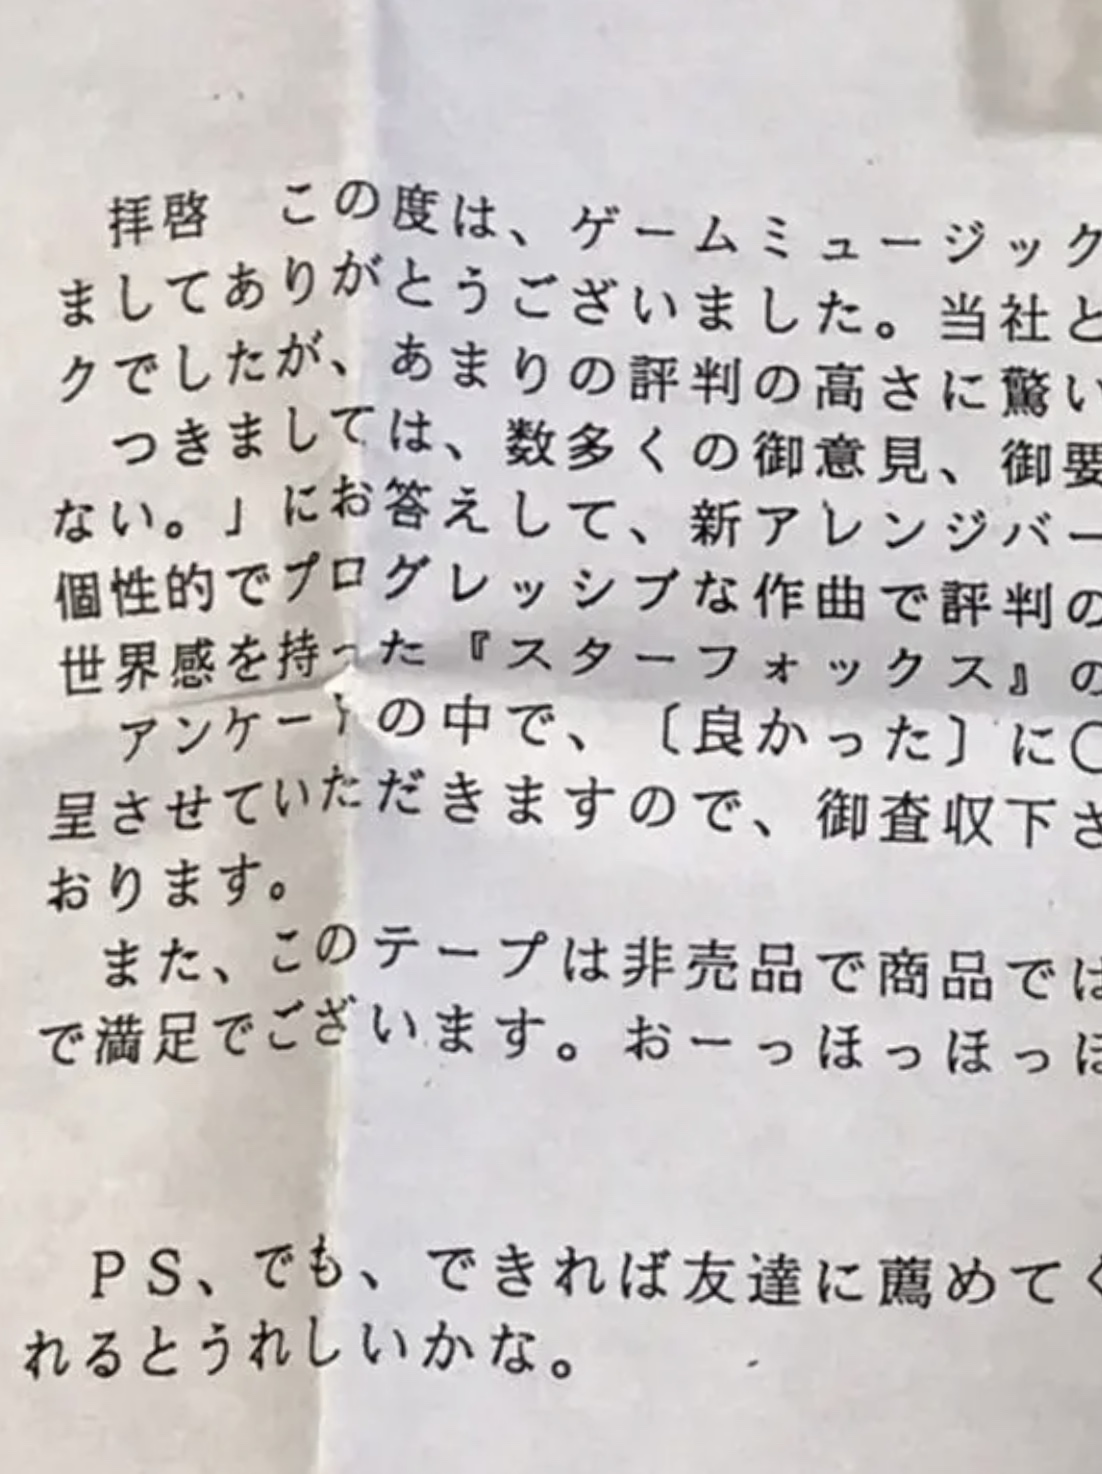 拝啓　この度は、ゲームミュージック
ましてありがとうございました。当社と
クでしたが、あまりの評判の高さに驚い
つきましては、数多くの御意見、御要
ない。」にお答えして、新アレンジバー
個性的でプログレッシブな作曲で評判の
世界感を持った『スターフォックス』の
アンケートの中で、〔良かった〕に〇
呈させていただきますので、御査収下さ
おります。
また、このテープは非売品で商品では
で満足でございます。おーっほっほっほ
ＰＳ、でも、できれば友達に薦めてく
れるとうれしいかな。